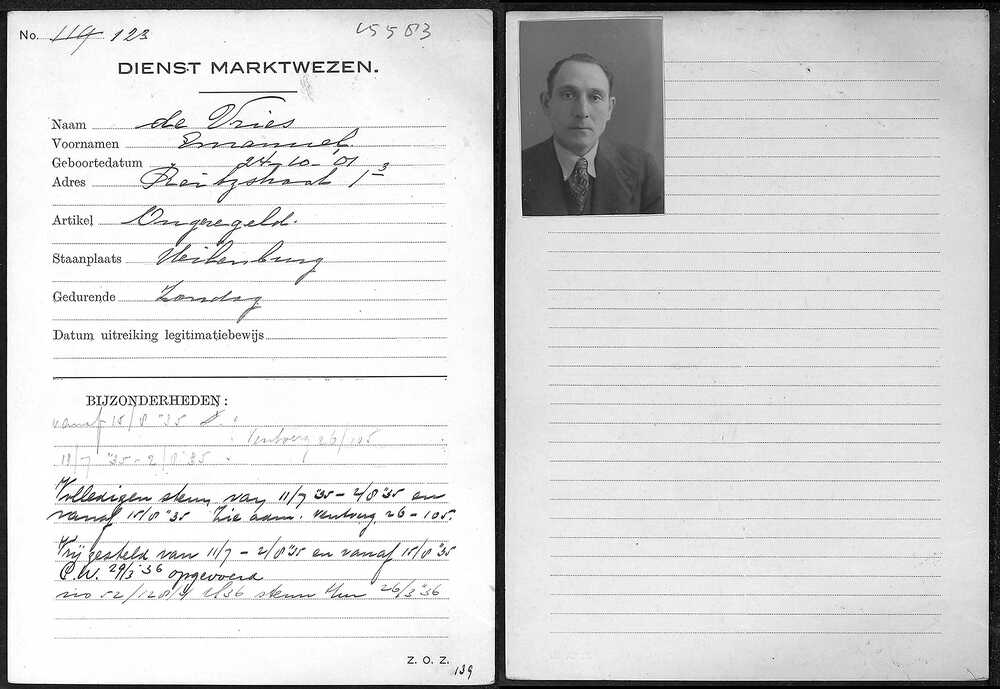 No. 114 123
45583
DIENST MARKTWEZEN.
Naam de Vries
Voornamen Emanuel.
Geboortedatum 24-10-'01
Adres Reitzstraat 1 3
Artikel Ongeregeld.
Staanplaats Uilenburg
Gedurende Zondag
Datum uitreiking legitimatiebewijs
BIJZONDERHEDEN:
vanaf 15/8 '35
Ventverg 26/105
11/7 '35 - 2/8 35
Volledigen steun van 11/7 '35 - 2/8 '35 en
vanaf 15/8 '35 Zie adm. ventverg. 26 - 105.
Vrijgesteld van 11/7 - 2/8 '35 en vanaf 15/8 '35
C.W. 29/3 '36 opgevoerd
no 52/128/ 1936 steun t/m 26/3 '36
Z. O. Z.
139